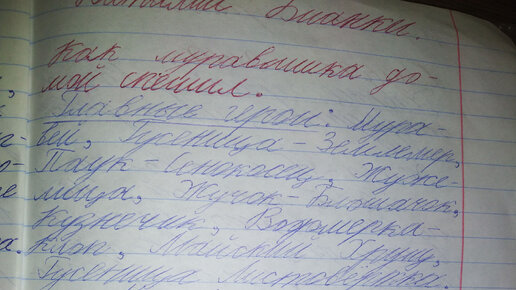 Виталий Бианки.
Как муравьишка до-
мой спешил.
Главные герои: Мура-
вей, Гусеница-Землемер,
Паук-Сенокосец, Жуже-
лица, Жучок-Блошачок,
Кузнечик, Водомерка-
Клоп, Майский Хрущ,
Гусеница Листовёртка.